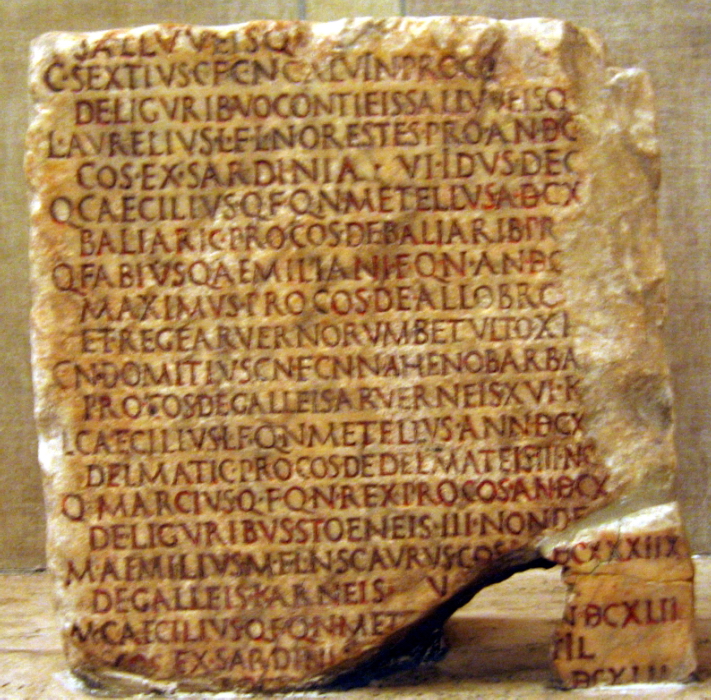 SALLUVEISQ
C·SEXTIVS·C·F·C·N·CALVIN·PROCO
DELIGVRIB·VOCONTIEIS·SALLUVEISQ
L·AVRELIVS·L·F·L·N·ORESTES·PRO·AN·DC
COS·EX·SARDINIA VI·IDVS·DEC
Q·CAECILIVS·Q·F·Q·N·METELLVS·A·DCX
BALIARIC·PROCOS·DE·BALIARIB·PR
Q·FABIVS·Q·AEMILIANI·F·Q·N·AN·DC
MAXIMVS·PROCOS·DE·ALLOBRO
ET·REGE·ARVERNORVM·BETVLTO·X·
CN·DOMITIVS·CN·F·CN·N·AHENOBARBA
PROCOS·DE·GALLEIS·ARVERNEIS·XVI·K
L·CAECILIVS·L·F·Q·N·METELLVS·ANN·DCX
DELMATIC·PROCOS·DE·DELMATEIS·III·N
Q·MARCIVS·Q·F·Q·N·REX·PROCOS·AN·DCX
DE·LIGVRIBVS·STOENEIS·III·NON·DE
M·AEMILIVS·M·F·L·N·SCAVRVS·COS DCXXXIIX
DE·GALLEIS·KARNEIS· V
M·CAECILIVS·Q·F·Q·N·MET N·DCXLII
COS EX·SARDINI TIL
DCXLII